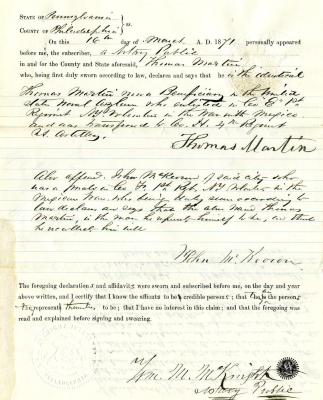 STATE OF Pennsylvania
COUNTY OF Philadelphia } ss.
On this 16th day of March A. D. 1871 personally appeared
before me, the subscriber, a Notary Public
in and for the County and State aforesaid, Thomas Martin
who, being first duly sworn according to law, declares and says that he is the identical
Thomas Martin now a Beneficiary in the United
States Naval Asylum who enlisted in Co E 1st
Regiment NY Volunteers in the War with Mexico
and was transferred to Co H 4th Regiment
US Artillery.
Thomas Martin
Also appeared John McKeown of said city who
was a private in Co 1st Regt. NY Volunteers in the
Mexican War who being duly sworn according to
law declares and says that the above named Thomas
Martin, is the man he represents himself to be, and that
he
John McKeown
The foregoing declarations and affidavits were sworn and subscribed before me, on the day and year
above written, and I certify that I know the affiants to be credible persons; that the person
represents to be; that I have no interest in this claim; and that the foregoing was
read and explained before signing and swearing.
Wm. M. McKnight
Notary Public
PHILADELPHIA